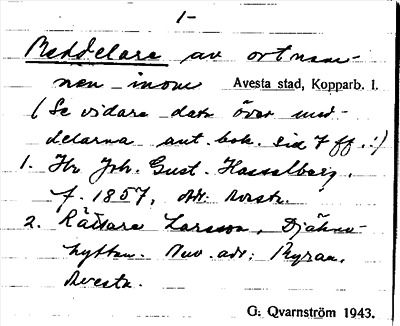 1-
Meddelare av ortnam-
nen inom Avesta stad, Kopparb. l.
(Se vidare data över med-
delarna ant. bok. sid 7 ff.:)
1. Hr Joh. Gust. Hasselberg,
f. 1857, Adr. Avesta.
2. Rättare Larsson, Djäkne-
hyttan. Nuv. adr: Kyran,
Avesta.
G. Qvarnström 1943.